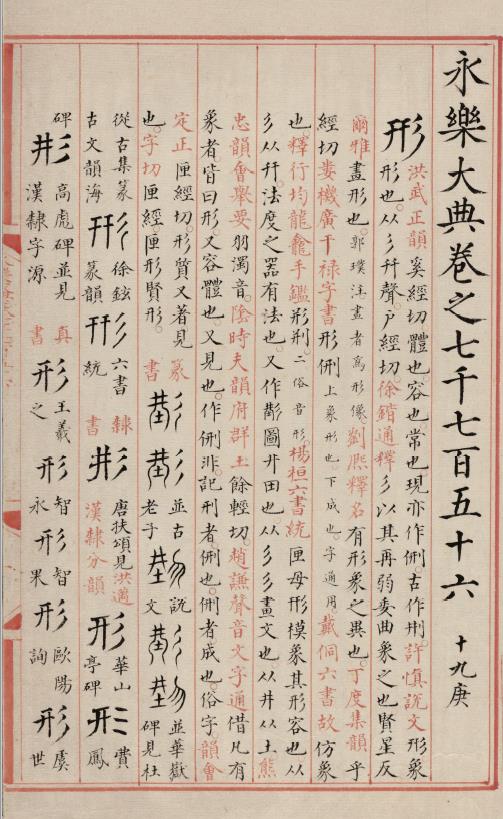 永樂大典卷之七千七百五十六 十九庚
形 洪武正韻奚經切體也容也常也現亦作侀古作㓝許慎說文形象
形也从彡幵聲戶經切徐鍇通釋彡以其再弱委曲象之也賢星反
爾雅畫形也郭璞注畫者為形像劉熙釋名有形象之異也丁度集韻乎
經切婁機廣干祿字書形侀上象形也下成也字通用戴侗六書故仿象
也釋行均龍龕手鑑形㓝二俗音形楊桓六書統匣母形模象其形容也从
彡从幵法度之器有法也又作圖井田也从彡彡畫文也从井从土熊
忠韻會舉要羽濁音陰時夫韻府群玉餘輕切趙謙聲音文字通借凡有
象者皆曰形又容體也又見也作侀非記刑者侀也侀者成也俗字韻會
定正匣經切形質又著見
也字切匣經匣形賢形 篆書 並古老子 說文 並華嶽碑見杜
從古集篆古文韻海 徐鉉篆韻 六書統 隸書 唐扶頌見洪适漢隸分韻 形 華山亭碑 形 費鳳
碑 形 高虎碑並見漢隸字源 真書 形 王羲之 形 智永 形 智果 形 歐陽詢 形 虞世